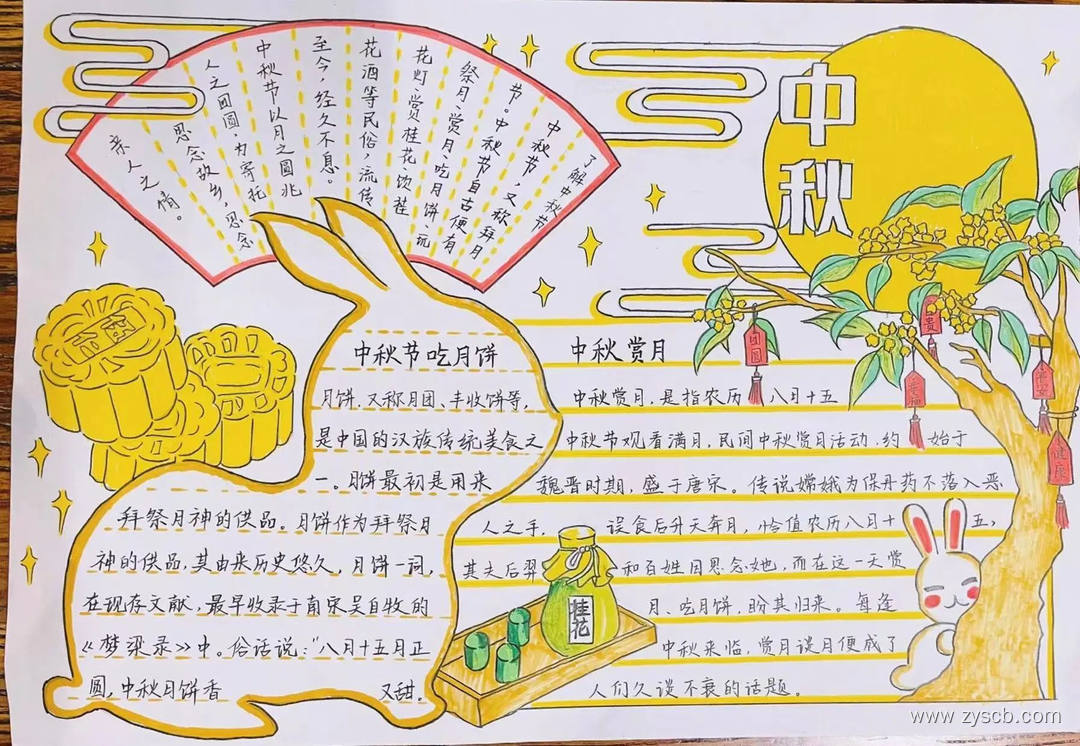 中秋
了解中秋节
中秋节，又称拜月
节。中秋节自古便有
祭月、赏月、吃月饼、玩
花灯、赏桂花、饮桂
花酒等民俗，流传
至今，经久不息。
中秋节以月之圆兆
人之团圆，为寄托
思念故乡，思念
亲人之情。
中秋节吃月饼
月饼，又称月团、丰收饼等，
是中国的汉族传统美食之
一。月饼最初是用来
拜祭月神的供品。月饼作为拜祭月
神的供品，其由来历史悠久，月饼一词，
在现存文献，最早收录于南宋吴自牧的
《梦梁录》中。俗话说："八月十五月正
圆，中秋月饼香又甜.
中秋赏月
中秋赏月，是指农历八月十五
中秋节观看满月，民间中秋赏月活动，约始于
魏晋时期，盛于唐宋。传说嫦娥为保丹药不落入恶
人之手，误食后升天奔月，恰值农历八月十五，
其夫后羿和百姓因思念她，而在这一天赏
月、吃月饼，盼其归来。每逢
中秋来临，赏月谈月便成了
人们久谈不衰的话题。
团圆
贵
幸福
健康
桂花
www.zyscb.com